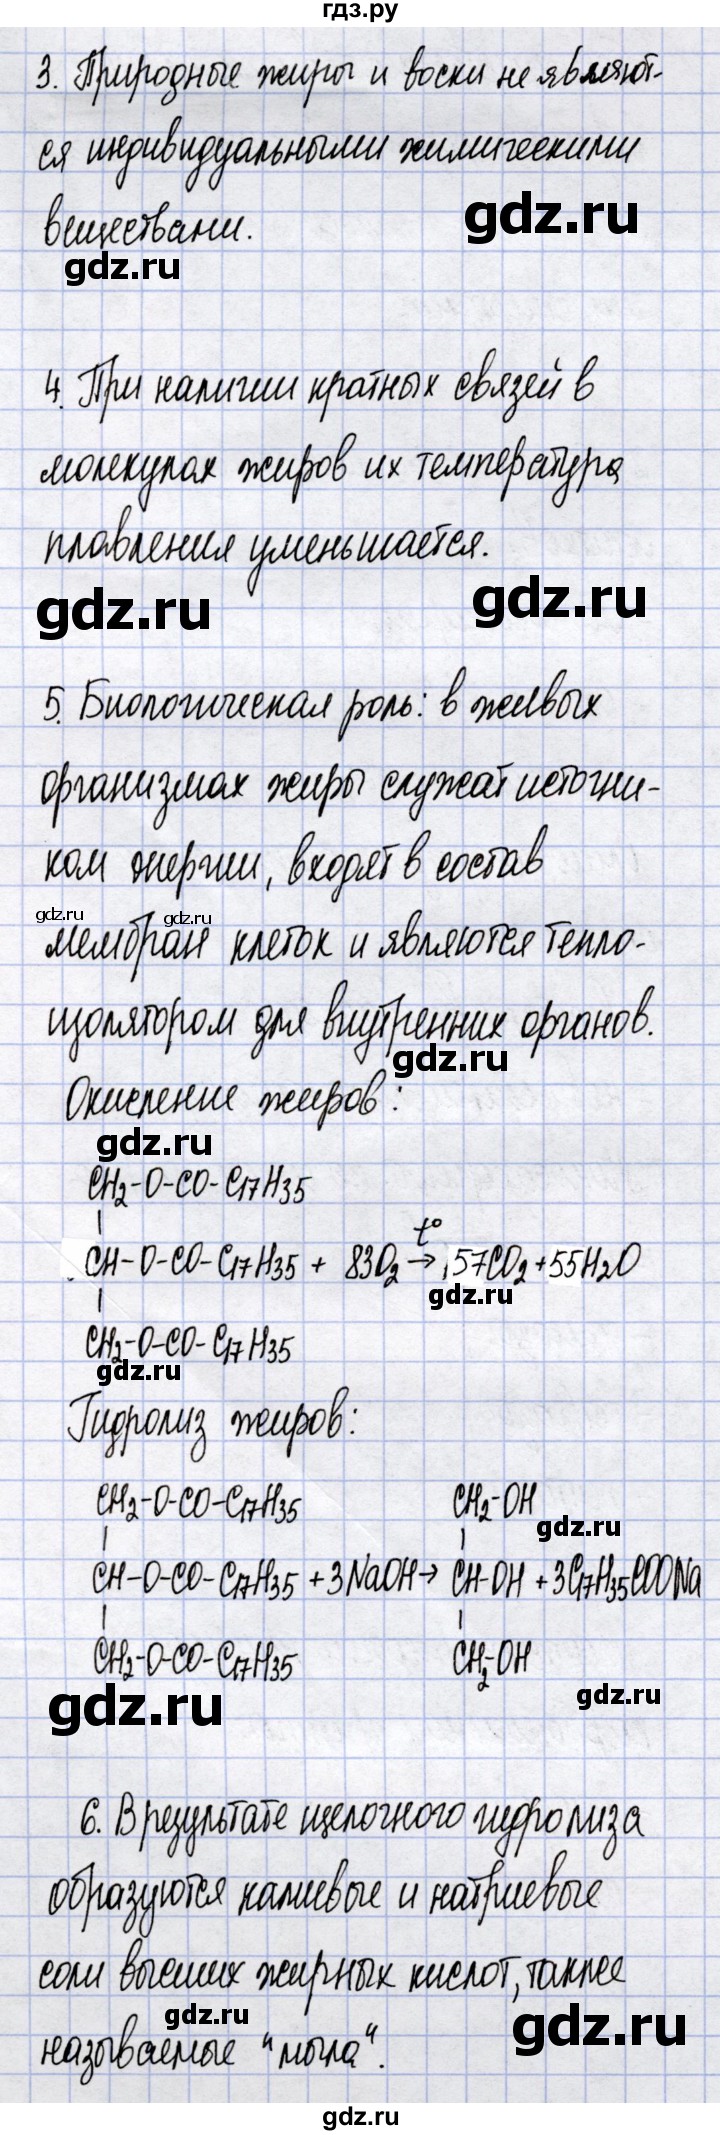 гдз.ру
3. Природные жиры и воски не являют-
ся индивидуальными химическими
веществами.
gdz.ru
gdz.ru
4. При наличии кратных связей в
молекулах жиров их температура
плавления уменьшается.
gdz.ru
gdz.ru
5. Биологическая роль: в живых
организмах жиры служат источни-
ком энергии, входят в состав
gdz.ru gdz.ru
мембран клеток и являются тепло-
изолятором для внутренних органов.
gdz.ru
Окисление жиров:
gdz.ru
CH2-O-CO-C17H35
|
CH-O-CO-C17H35 + 83O2 t° → 57CO2+55H2O
gdz.ru
|
CH2-O-CO-C17H35
gdz.ru
Гидролиз жиров:
CH2-O-CO-C17H35 CH2-OH
gdz.ru
| |
CH-O-CO-C17H35 + 3NaOH → CH-OH + 3C17H35COONa
| |
CH2-O-CO-C17H35 CH2-OH
gdz.ru
gdz.ru
6. В результате щелочного гидролиза
образуются калиевые и натриевые
соли высших жирных кислот, также
gdz.ru
gdz.ru
называемые "мыла".
gdz.ru